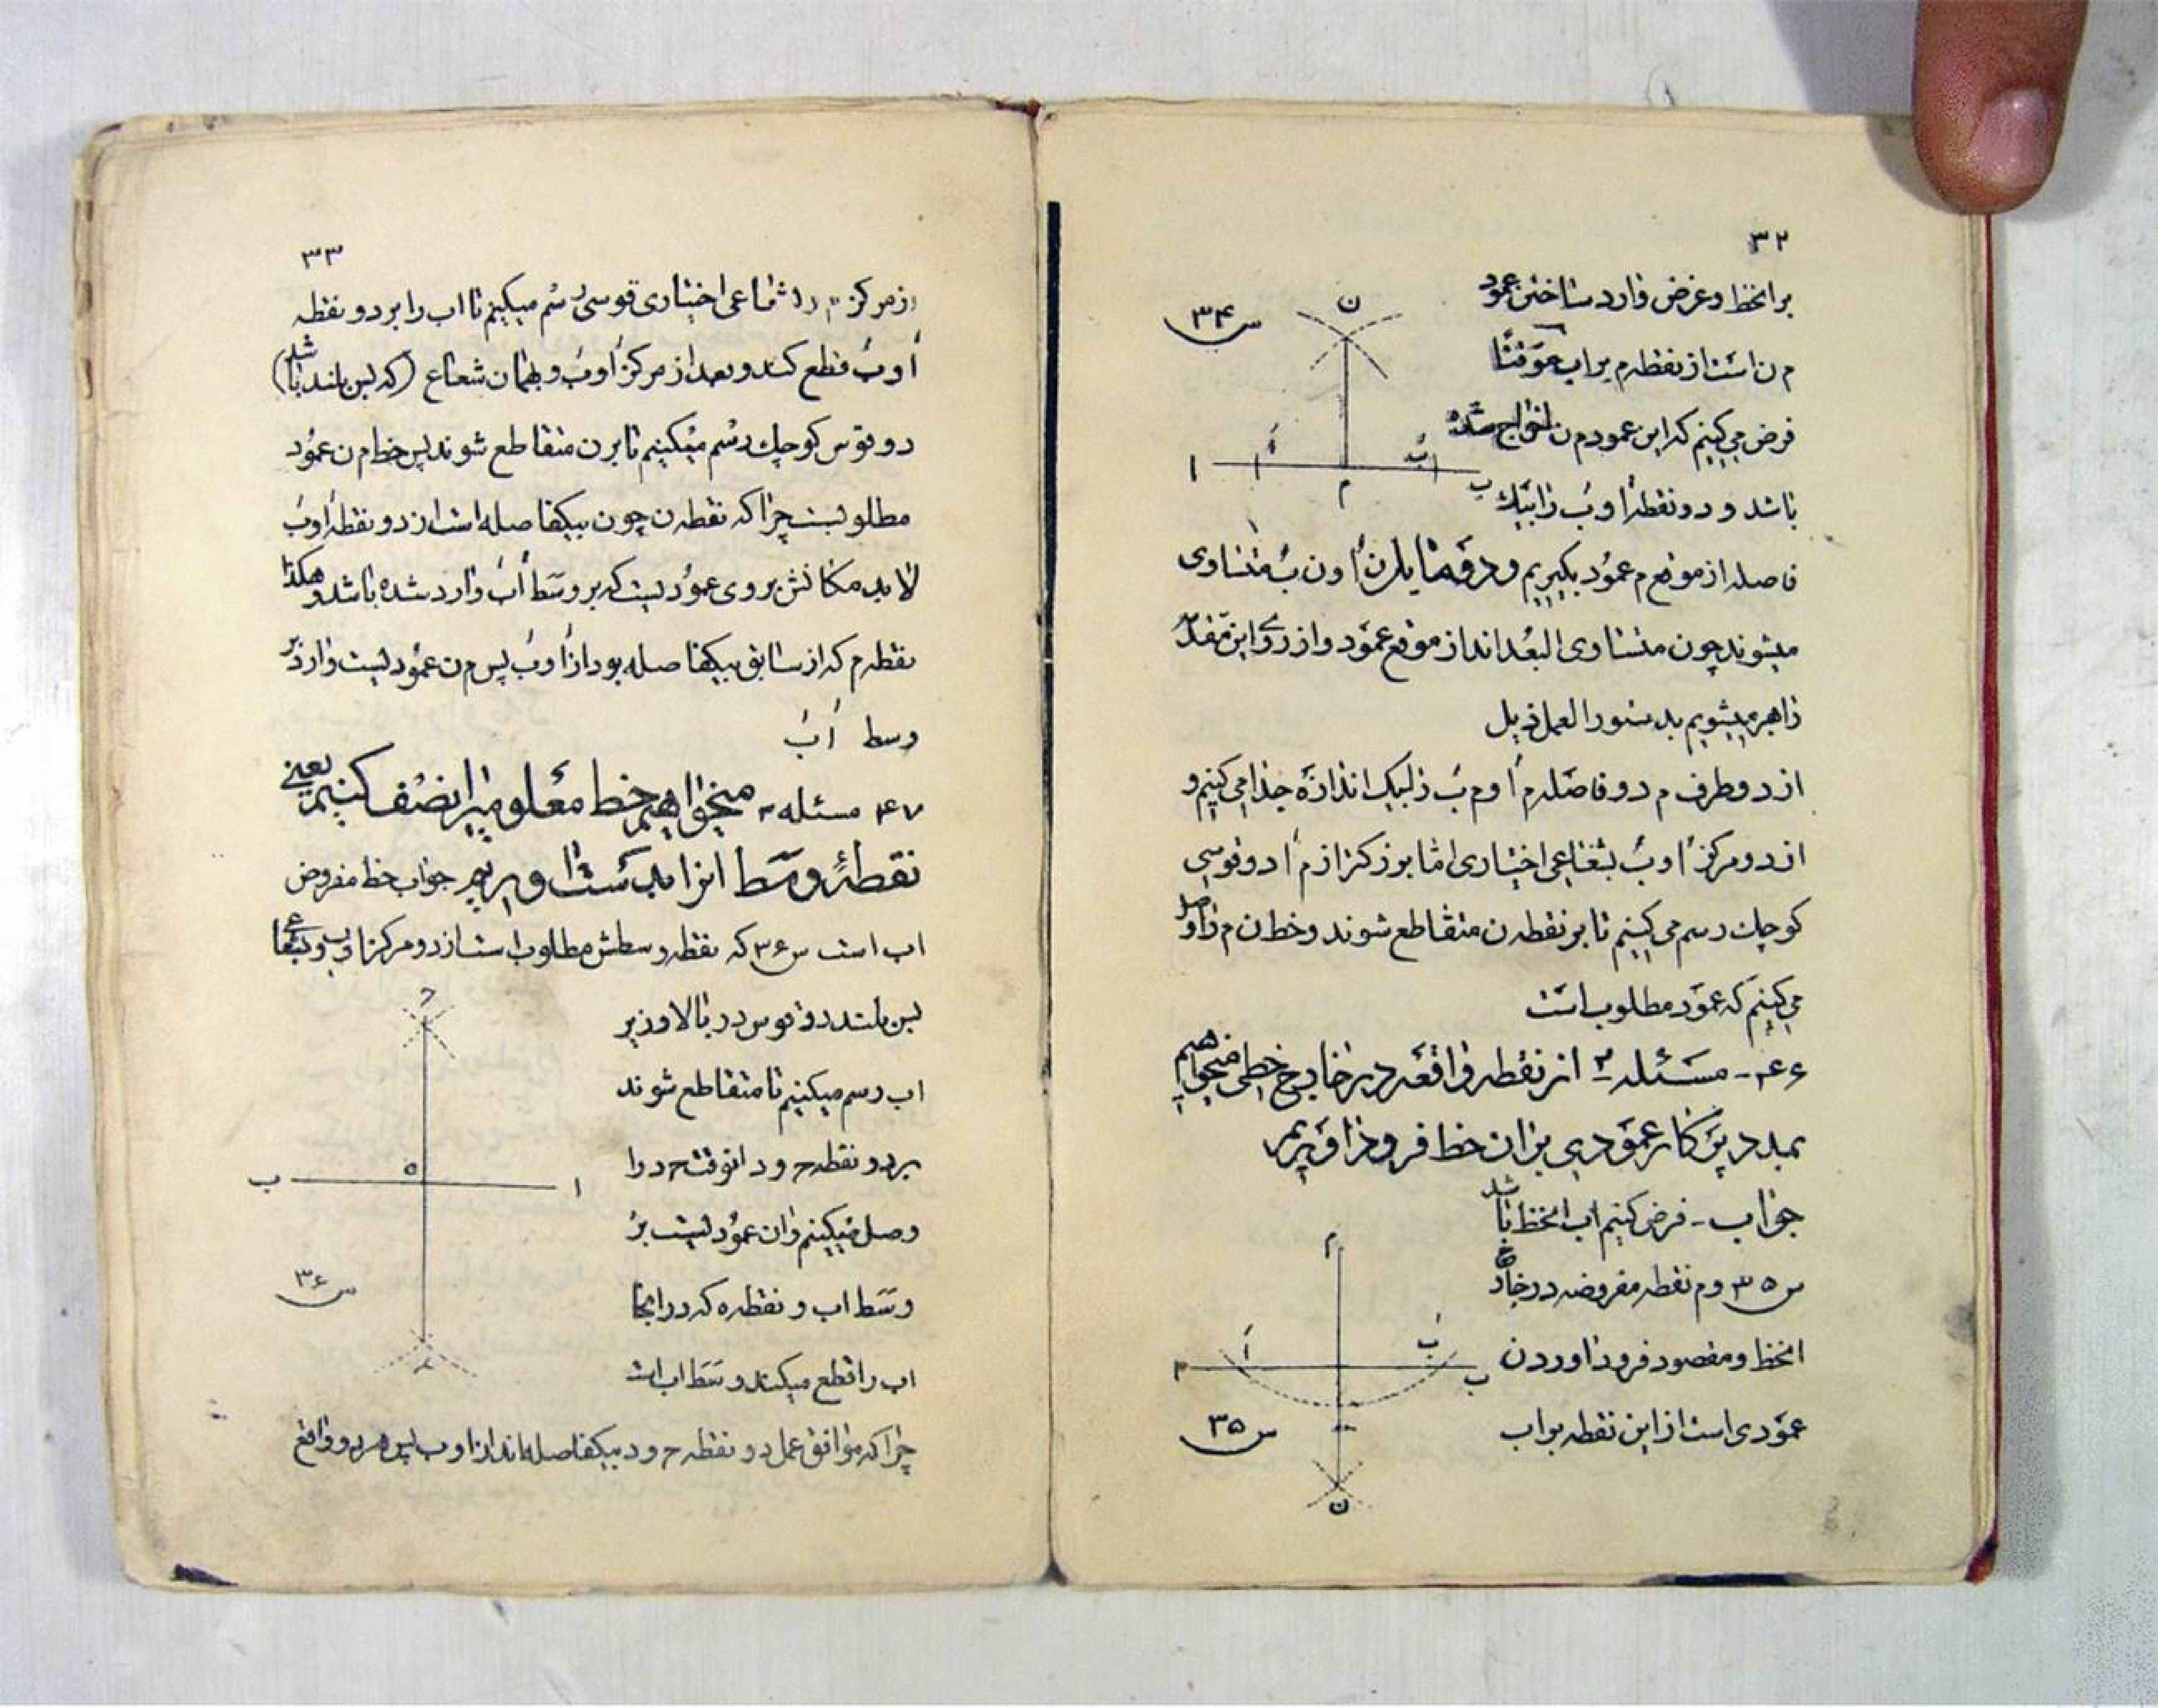 ۳۲
برانخط و غرض وارد ساختن عمود
م ن است از نقطه م بر اب موقتاً
فرض می‌کنیم که این عمود م ن اخراج شده
باشد و دو نقطه اَ و بَ را بیک
فاصله از موقع م عمود بگیریم و دو مایل ن اَ و ن بَ متساوی
میشوند چون متساوی البعد اند از موقع عمود و از روی این
راهبر میشویم بدستور العمل ذیل
از دو طرف م دو فاصله م اَ و م بَ را بیک اندازه جدا می‌کنیم و
از دو مرکز اَ و بَ بشعاعی اختیاری اما بزرکتر از م اَ دو قوسی
کوچک رسم می‌کنیم تا بر نقطه ن متقاطع شوند و خط ن م را وصل
می‌کنیم که عمود مطلوب است
۴۶ - مسئله ۳ از نقطه واقعه در خارج خطی میخواهیم
بمدد پرکار عمودی بر ان خط فرود اوریم
جواب - فرض کنیم اب انخط باشد
س ۳۵ و م نقطه مفروضه در خارج
انخط و مقصود فرود اوردن
عمودی است از این نقطه بر اب
ن
س ۳۴
اَ
بَ
ا
م
ب
م
اَ
بَ
ب
س ۳۵
ن
۳۳
از مرکز م و شعاعی اختیاری قوسی رسم میکنیم تا اب را بر دو نقطه
اَ و بَ قطع کند و بعد از مرکز اَ و بَ و بهمان شعاع (که بس بلند باشد)
دو قوس کوچک رسم میکنیم تا بر ن متقاطع شوند پس خط م ن عمود
مطلوبست چرا که نقطه ن چون بیکفاصله است از دو نقطه اَ و بَ
لابد مکانش بر روی عمودیست که بر وسط اَبَ وارد شده باشد و هکذا
نقطه م که از سابق بیکفاصله بود از اَ و بَ پس م ن عمودیست وارد بر
وسط اَبَ
۴۷ مسئله - میخواهیم خط معلومیرا نصف کنیم یعنی
نقطهٔ وسط انرا بدست اوریم جواب خط مفروض
اب است س ۳۶ که نقطه وسطش مطلوب است از دو مرکز ا و ب و بشعاعی
بس بلند دو قوس در بالا و زیر
اب رسم میکنیم تا متقاطع شوند
بر دو نقطه ح و د انوقت ح د را
وصل میکنیم و ان عمودیست بر
وسط اب و نقطه ه که در انجا
اب را قطع میکند وسط اب است
چرا که موافق عمل دو نقطه ح و د بیکفاصله‌اند از ا و ب پس هر دو واقع
د
ه
ب
ا
س ۳۶
ح